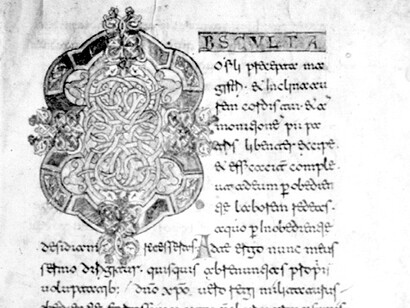 OBSCULTA
o fili precepta ma
gistri. & inclina au
rem cordis tui. & ad
monitione pii pa
tris libenter excipe.
& efficaciter comple.
ut ad eum p obedien
tie laborem redeas.
a quo p inobedientie
desidiam recesseras. Ad te ergo nunc meus
sermo dirigitur. quisquis abrenuntians propriis
voluptatib; dno xpo. vero regi militaturus